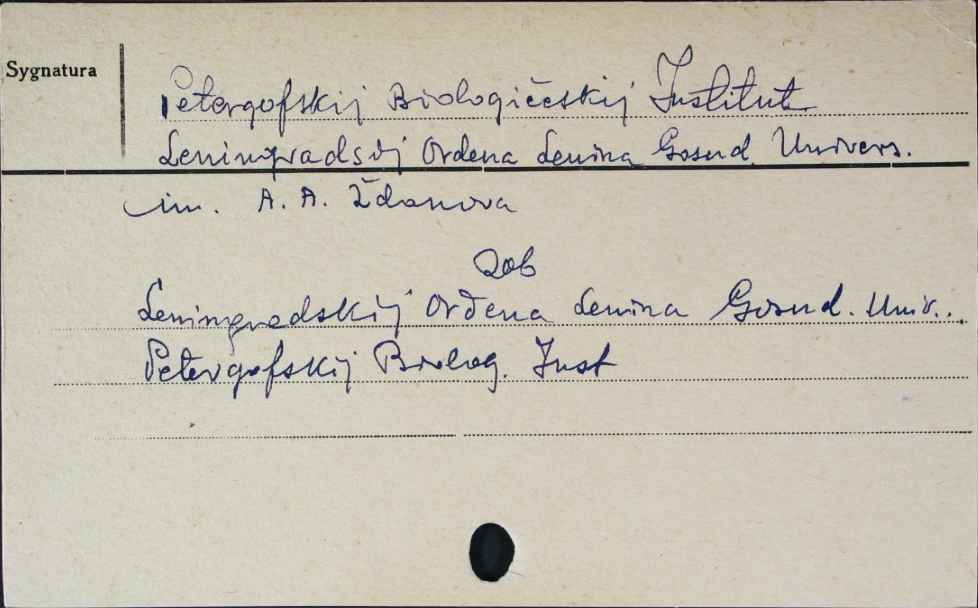 Sygnatura
Petergofskij Biologičeskij Institut
Leningradskij Ordena Lenina Gosud. Univers.
im. A. A. Ždanova
Zob
Leningradskij Ordena Lenina Gosud. Univ..
Petergofskij Biolog. Inst